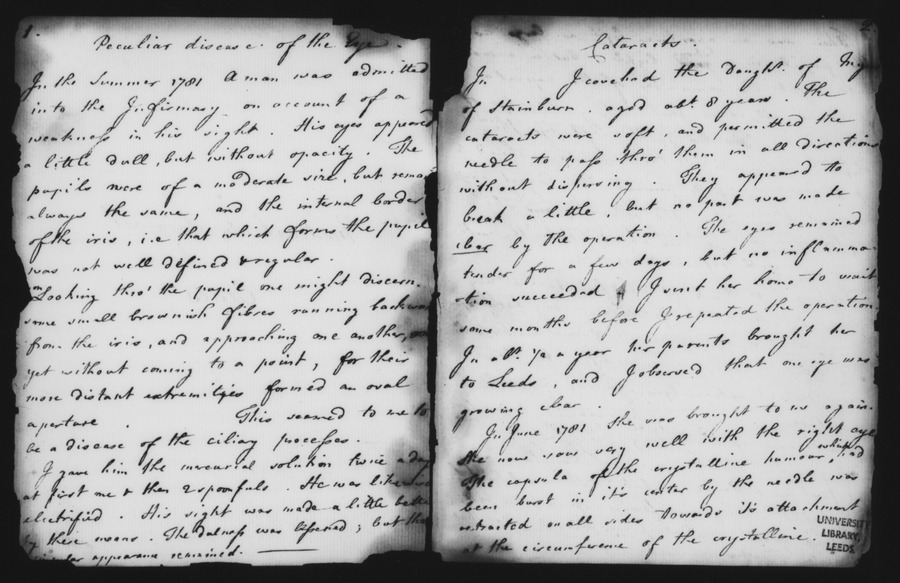 1.
Peculiar disease of the Eye.
In the Summer 1781 A man was admitted
into the Infirmary on account of a
weakness in his sight. His eyes appeared
a little dull, but without opacity. The
pupils were of a moderate size, but remai
always the same, and the internal border
of the iris, i.e that which forms the pupil
was not well defined & regular.
on Looking thro' the pupil one might discern
some small brownish fibres running backwa
from the iris, and approaching one another,
yet without coming to a point, for their
more distant extremities formed an oval
aperture This seemed to me to
be a disease of the ciliary processes.
I gave him the mercurial solution twice a day
at first one & then 2 spoonfuls. He was likewise
electrified. His sight was made a little better
by these means. The dulness was lessened; but the
appearance remained.
2
Cataracts.
In I couched the Daught. of
of Stainburn. aged abt 8 years. The
cataracts were soft, and permitted the
needle to pass thro' them in all directions
without dispersing. They appeared to
break a little, but no part was made
clear by the operation. The eyes remained
tender for a few days, but no inflamma-
-tion succeeded I sent her home to wait
some months before I repeated the operation
In abt. 1/2 a year her parents brought her
to Leeds, and I observed that one eye was
growing clear.
In June 1781 She was brought to me again.
She now saw very well with the right eye
The capsula of the crystalline humour, which had
been burst in it's center by the needle was
retracted on all sides towards it's attachment
at the circumference of the crystalline.
UNIVERSITY
LIBRARY,
LEEDS